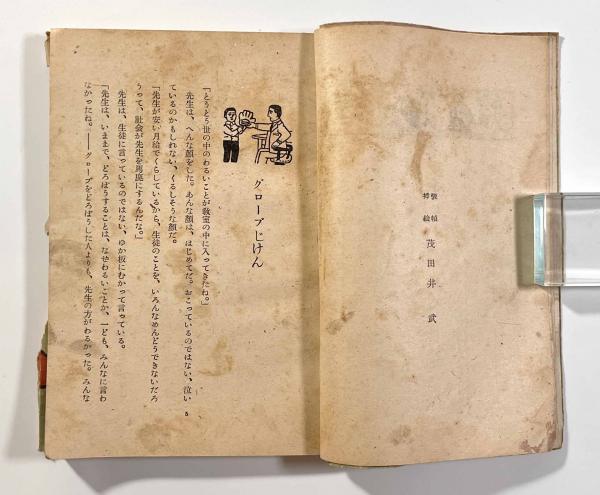 装幀
挿絵 茂田井 武
グローブじけん
「とうとう世の中のわるいことが教室の中に入ってきたね。」
先生は、へんな顔をした。あんな顔は、はじめてだ。おこっているのではない、泣い
ているのかもしれない、くるしそうな顔だ。
「先生が安い月給でくらしているから、生徒のことを、いろんなめんどうできないだろ
うって、社会が先生を馬鹿にするんだな。」
先生は、生徒に言っているのではない、ゆか板にむかって言っている。
「先生は、いままで、どろぼうすることは、なぜわるいことか、一ども、みんなに言わ
なかったね。――グローブをどろぼうした人よりも、先生の方がわるかった。みんな
5